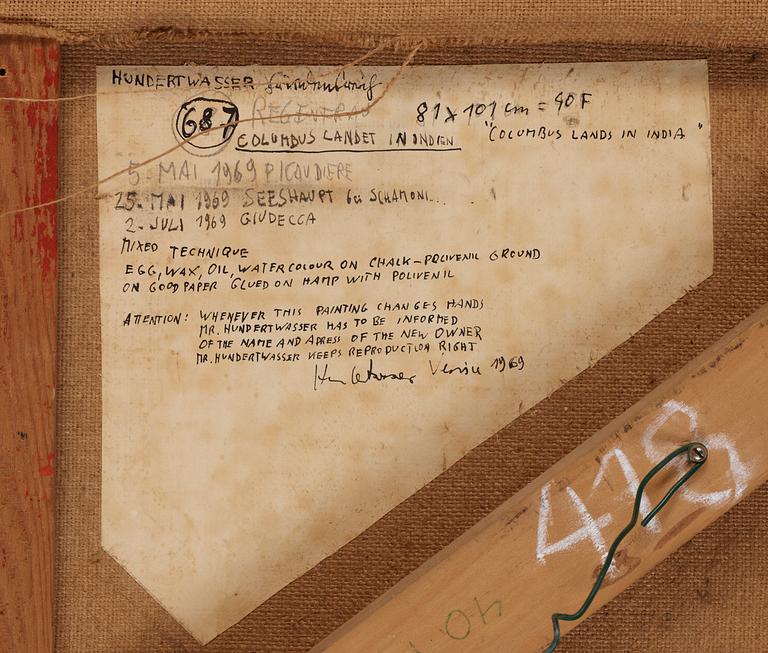 HUNDERTWASSER
687 REGENTAG 81 x 101 cm = 40 F
COLUMBUS LANDET IN INDIEN "COLUMBUS LANDS IN INDIA"
5. MAI 1969 PICAUDIERE
25. MAI 1969 SEESHAUPT bei SCHAMONI...
2. JULI 1969 GIUDECCA
MIXED TECHNIQUE
EGG, WAX, OIL, WATERCOLOUR ON CHALK-POLIVENIL GROUND
ON GOOD PAPER GLUED ON HAMP WITH POLIVENIL
ATTENTION: WHENEVER THIS PAINTING CHANGES HANDS
MR. HUNDERTWASSER HAS TO BE INFORMED
OF THE NAME AND ADRESS OF THE NEW OWNER
MR. HUNDERTWASSER KEEPS REPRODUCTION RIGHT
Hundertwasser Venice 1969
418
40